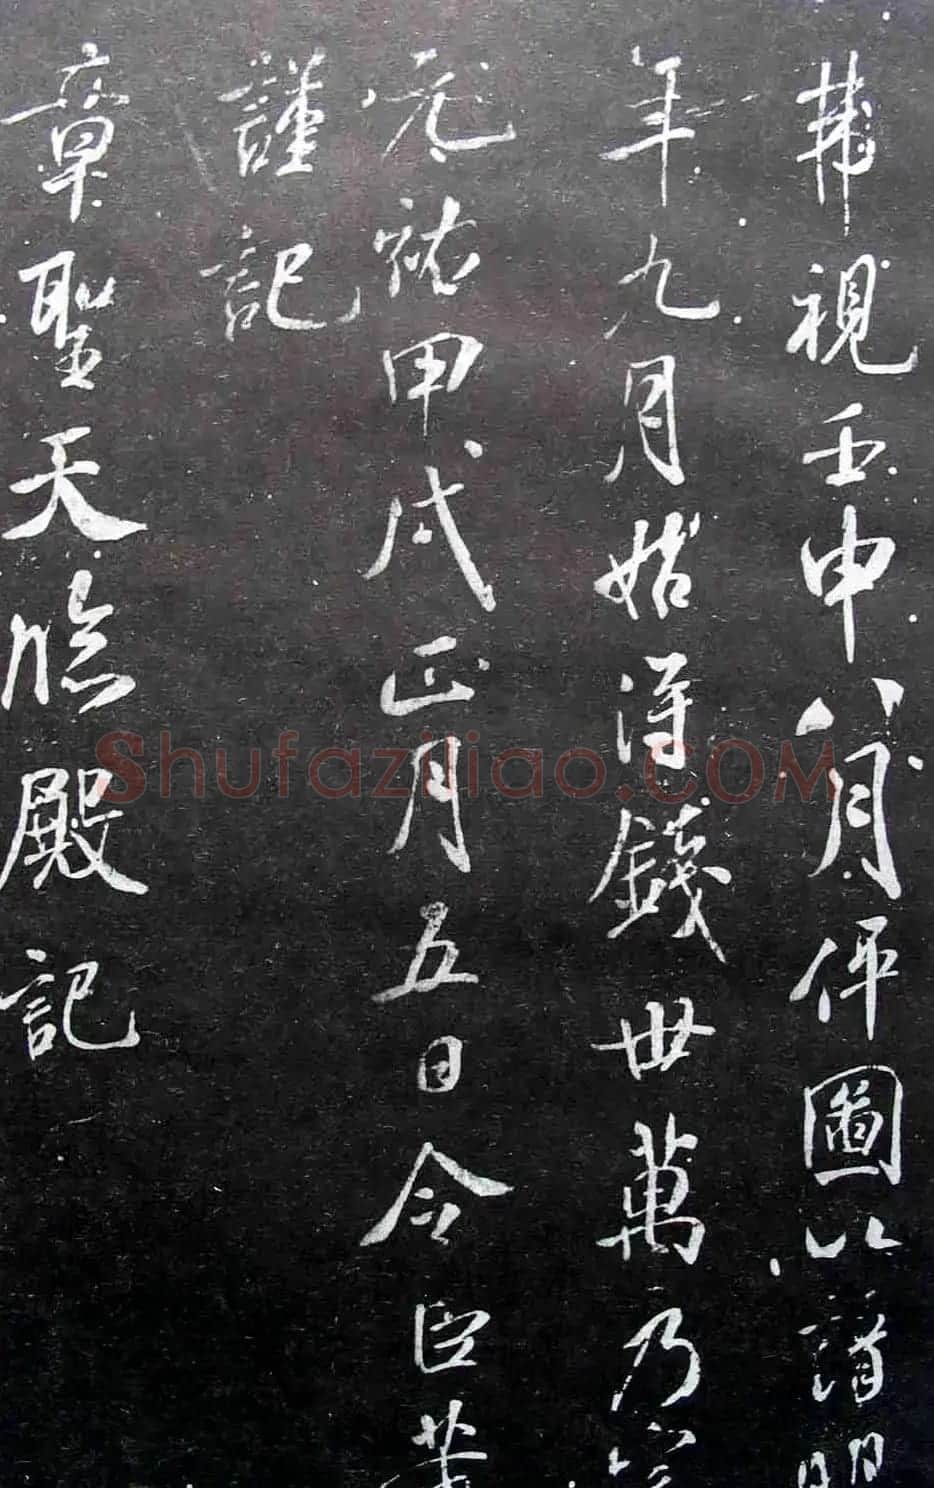 芾視壬申八月伻圖以請明
年九月始得錢卅萬乃
元祐甲戌正月五日令臣芾
謹記
章聖天臨殿記
Shufaziliao.COM